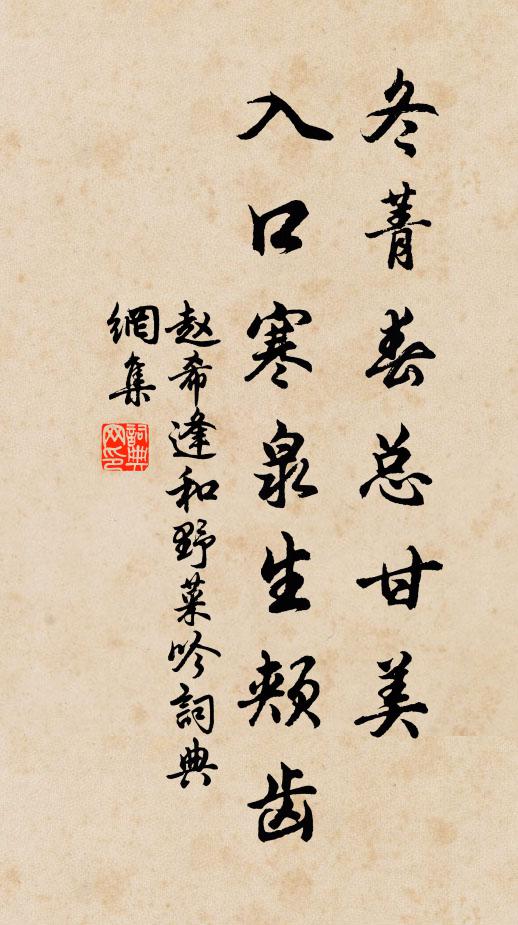 冬菁春总甘美
入口寒泉生颊齿
赵希逢和野菜吟詞典
網集
詞典
网印